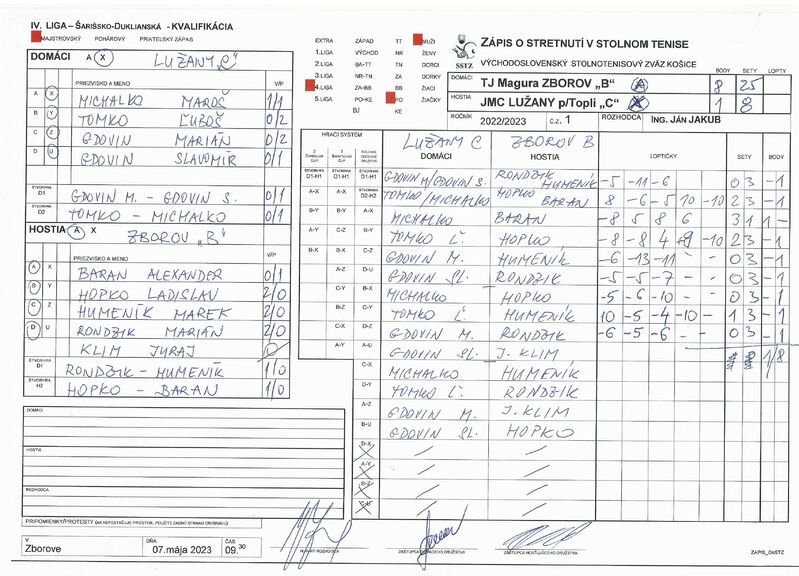 IV. LIGA – ŠARIŠSKO-DUKLIANSKÁ - KVALIFIKÁCIA
MAJSTROVSKÝ POHÁROVÝ PRIATELSKÝ ZÁPAS
DOMÁCI A X LUŽANY „C"
PRIEZVISKO A MENO V/P
A X MICHALKO MAROŠ 1/1
B Y TOMKO ĽUBOŠ 0/2
C Z GDOVIN MARIÁN 0/2
D U GDOVIN SLAVOMÍR 0/1
ŠTVORHRA D1 GDOVIN M. - GDOVIN S. 0/1
ŠTVORHRA D2 TOMKO - MICHALKO 0/1
HOSTIA A X ZBOROV „B"
PRIEZVISKO A MENO V/P
A X BARAN ALEXANDER 0/1
B Y HOPKO LADISLAV 2/0
C Z HUMENÍK MAREK 2/0
D U RONDZIK MARIÁN 2/0
KLIM JURAJ
ŠTVORHRA D1 RONDZIK - HUMENÍK 1/0
ŠTVORHRA H2 HOPKO - BARAN 1/0
DOMÁCI
HOSTIA
ROZHODCA
PRIPOMIENKY/PROTESTY (AK NEPOSTAČUJE PRIESTOR, POUŽITE ZADNÚ STRANU ORIGINÁLU)
V Zborove DŇA 07.mája 2023 ČAS 09.30
EXTRA ZÁPAD TT MUŽI
1.LIGA VÝCHOD NR ŽENY
2.LIGA BA-TT TN DORCI
3.LIGA NR-TN ZA DORKY
4.LIGA ZA-BB BB ŽIACI
5.LIGA PO-KE PO ŽIAČKY
BJ KE
SSTZ
ZÁPIS O STRETNUTÍ V STOLNOM TENISE
VÝCHODOSLOVENSKÝ STOLNOTENISOVÝ ZVÄZ KOŠICE
BODY SETY LOPTY
DOMÁCI TJ Magura ZBOROV „B" A 8 25
HOSTIA JMC LUŽANY p/Topli „C" X 1 8
ROČNÍK 2022/2023 č.z. 1 ROZHODCA ING. JÁN JAKUB
HRACÍ SYSTÉM
LUŽANY C ZBOROV B
DOMÁCI HOSTIA LOPTIČKY SETY BODY
D1-H1 D1-H1 D1-H1 GDOVIN M/GDOVIN S. RONDZIK HUMENÍK -5 -11 -6 03 -1
A-X A-X D2-H2 TOMKO/MICHALKO HOPKO BARAN 8 -6 -5 10 -10 23 -1
B-Y B-Y A-X MICHALKO BARAN -8 5 8 6 31 1-
A-Y C-Z B-Y TOMKO Ľ. HOPKO -8 -8 4 9 -10 23 -1
B-X B-X C-Z GDOVIN M. HUMENÍK -6 -13 -11 - - 03 -1
A-Z D-U GDOVIN SL. RONDZIK -5 -5 -7 - - 03 -1
C-Y B-X MICHALKO HOPKO -5 -6 -10 - - 03 -1
B-Z C-Y TOMKO Ľ. HUMENÍK 10 -5 -4 -10 - 13 -1
C-X D-Z GDOVIN M. RONDZIK -6 -5 -6 - - 03 -1
A-Y A-U GDOVIN SL. J. KLIM 1/8
C-X MICHALKO HUMENÍK
D-Y TOMKO Ľ. RONDZIK
A-Z GDOVIN M. J. KLIM
B-U GDOVIN SL. HOPKO
D-X
A-Y
B-Z
C-U
HLAVNÝ ROZHODCA
ZÁSTUPCA DOMÁCEHO DRUŽSTVA
ZÁSTUPCA HOSŤUJÚCEHO DRUŽSTVA
ZAPIS_OdSTZ